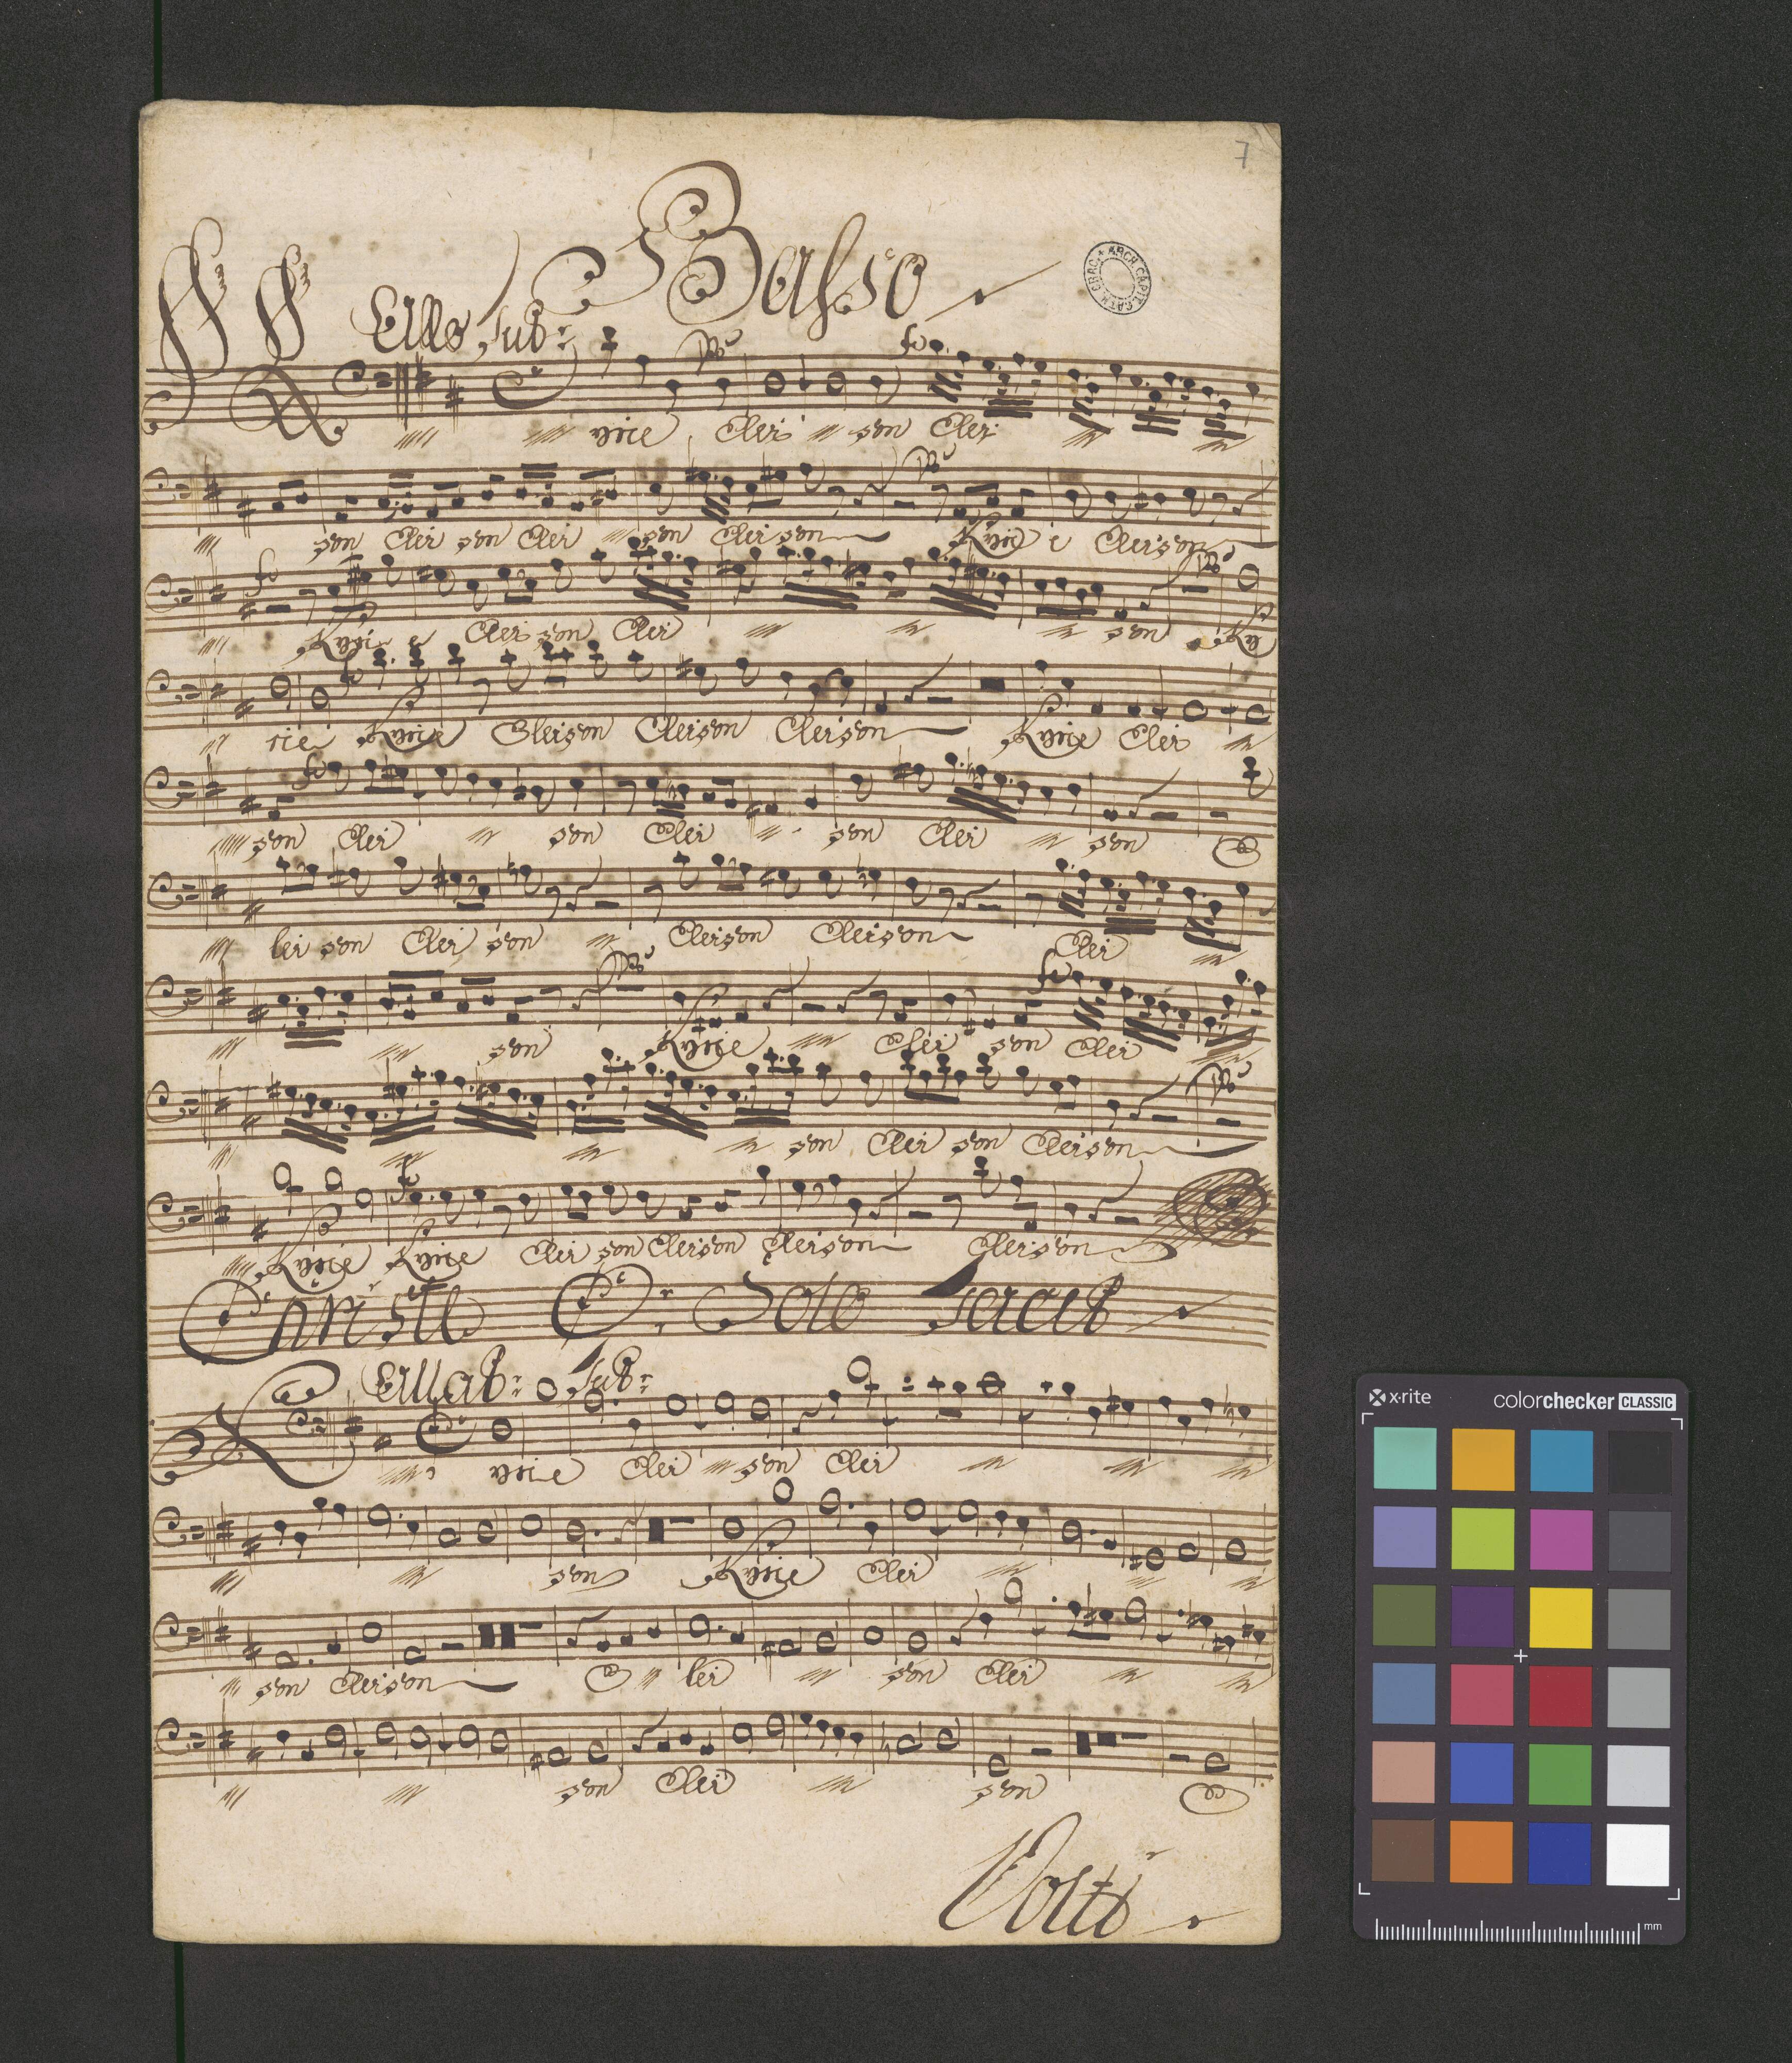 7
Basso
ARCH. CAPIT. CATH. CRAC.
Allo Sub:
Kyrie Elei son Elei
po
fe
son Elei son Elei son Elei son Kyri e Eleison
po
fe
Kyri e Elei son Elei son Ky
po
rie Kyrie Eleison Eleison Eleison Kyrie Elei
fe
son Elei son Elei son Elei son E
lei son Elei son Eleison Eleison Elei
po
fe
son Kyrie Elei son Elei
po
son Elei son Eleison
fe
Kyrie Kyrie Elei son Eleison Eleison Eleison
Christe Solo Tacet
Kyrie Elei son Elei
son Kyrie Elei
son Eleison E lei son Elei
son Elei son E
Volti
x-rite
colorchecker CLASSIC
mm